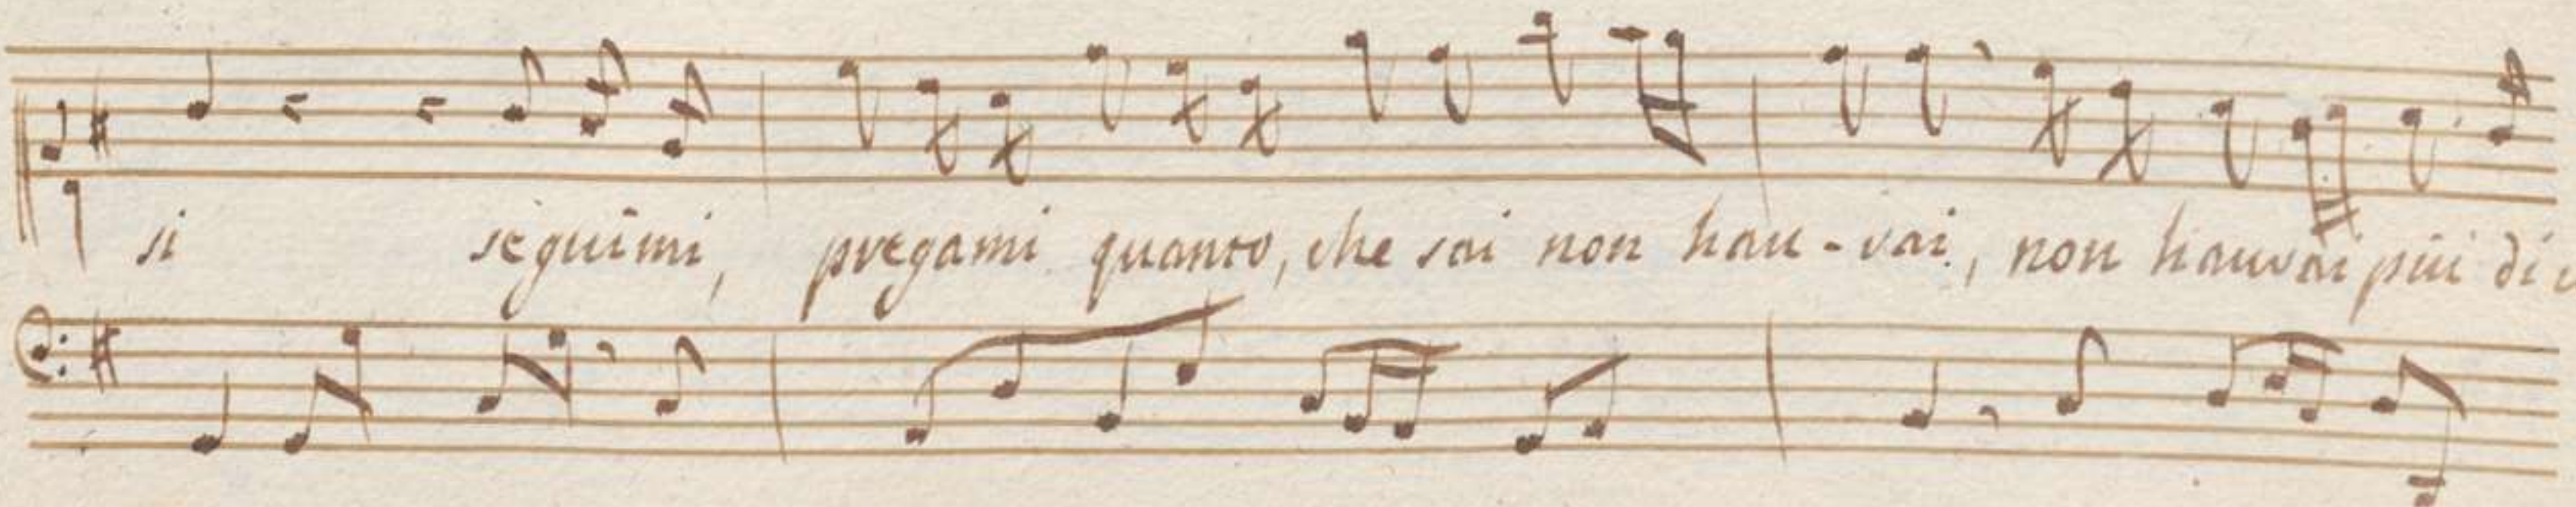 si seguimi, pregami quanto, che sai non hau-vai, non hauvai piu di